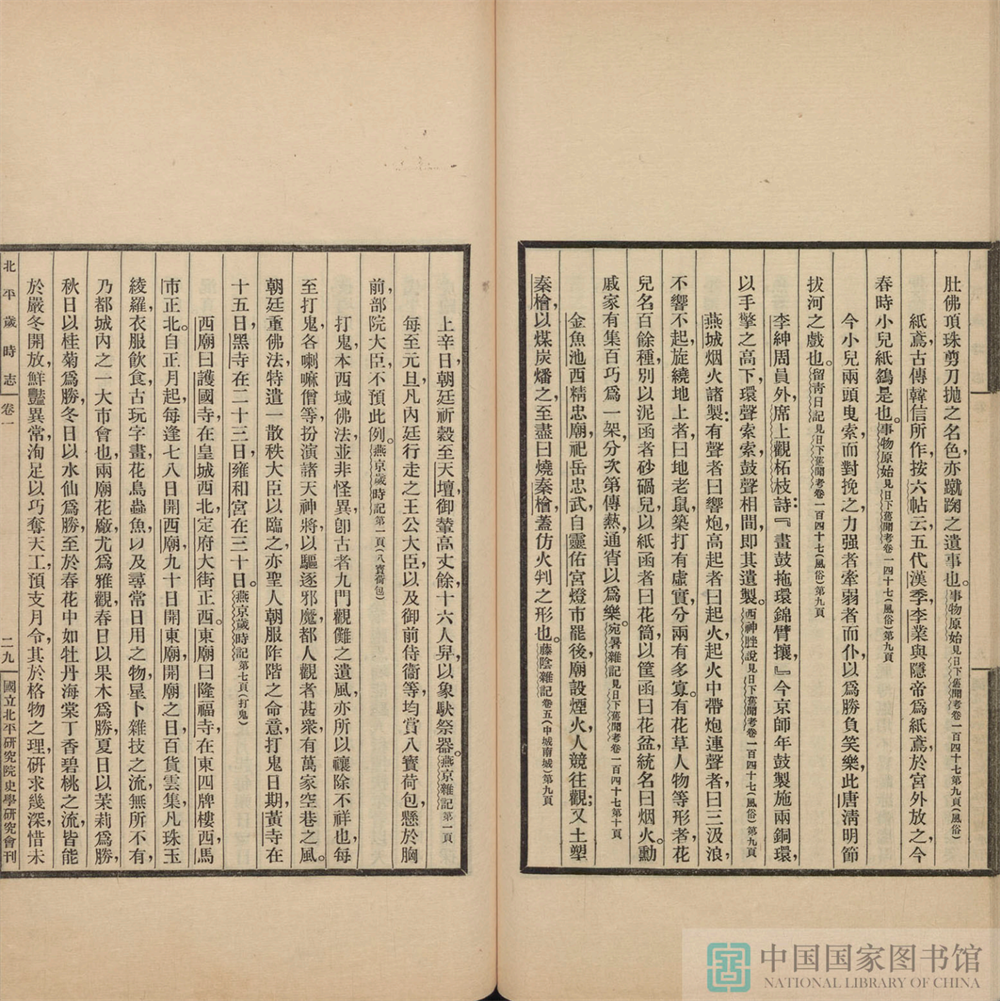 肚佛頂珠剪刀拋之名色亦蹴踘之遺事也。事物原始見日下舊聞考卷一百四十七第九頁(風俗)
紙鳶古傳韓信所作按六帖云五代漢季李業與隱帝爲紙鳶於宮外放之今
春時小兒紙鷂是也。事物原始見日下舊聞考卷一四十七(風俗)第九頁
今小兒兩頭曳索而對挽之力强者牽弱者而仆以爲勝負笑樂此唐淸明節
拔河之戲也。留靑日記見日下舊聞考卷一百四十七(風俗)第九頁
李紳周員外席上觀柘枝詩:『畫鼓拖環錦臂攘』今京師年鼓製施兩銅環,
以手擎之高下環聲索索鼓聲相間,卽其遺製。西神脞說見日下舊聞考卷一百四十七(風俗)第九頁
燕城烟火諸製有聲者曰響炮高起者曰起火起火中帶炮連聲者曰三汲浪,
不響不起旋繞地上者曰地老鼠築打有虛實分兩有多寡。有花草人物等形者花
兒名百餘種別以泥函者砂碢兒以紙函者曰花筒以筐函曰花盆統名曰烟火。勳
戚家有集百巧爲一架分次第傳爇通宵以爲樂。宛署雜記見日下舊聞考卷一百四十七第十頁
金魚池西精忠廟祀岳忠武自靈佑宮燈市罷後廟設煙火人競往觀;又土塑
秦檜以煤炭燔之至盡曰燒秦檜蓋仿火判之形也。藤陰雜記卷五(中城南城)第九頁
上辛日朝廷祈穀至天壇御輦高丈餘十六人舁以象馱祭器。燕京雜記第一頁
每至元旦凡內廷行走之王公大臣以及御前侍衞等均賞八寶荷包懸於胸
前部院大臣不預此例。燕京歲時記第一頁(八寶荷包)
打鬼本西域佛法並非怪異卽古者九門觀儺之遺風亦所以禳除不祥也每
至打鬼各喇嘛僧等扮演諸天神將以驅逐邪魔都人觀者甚衆有萬家空巷之風。
朝廷重佛法特遣一散秩大臣以臨之亦聖人朝服阼階之命意打鬼日期黃寺在
十五日黑寺在二十三日雍和宮在三十日。燕京歲時記第七頁(打鬼)
西廟曰護國寺在皇城西北定府大街正西。東廟曰隆福寺在東四牌樓西馬
市正北。自正月起每逢七八日開西廟九十日開東廟開廟之日百貨雲集凡珠玉
綾羅衣服飲食古玩字畫花鳥蟲魚以及尋常日用之物星卜雜技之流無所不有,
乃都城內之一大市會也兩廟花廠尤爲雅觀春日以果木爲勝夏日以茉莉爲勝,
秋日以桂菊爲勝冬日以水仙爲勝至於春花中如牡丹海棠丁香碧桃之流皆能
於嚴冬開放鮮豔異常洵足以巧奪天工預支月令其於格物之理研求幾深惜未
北平歲時志 卷一 二九 國立北平硏究院史學硏究會刊
中国国家图书馆
NATIONAL LIBRARY OF CHINA